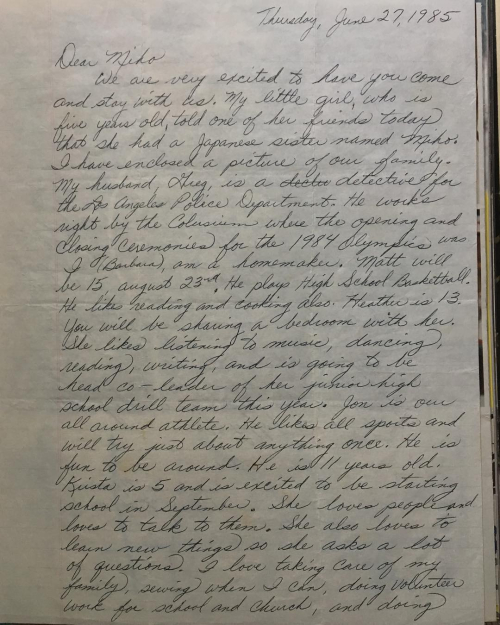 Thursday, June 27, 1985
Dear Miho
We are very excited to have you come
and stay with us. My little girl, who is
five years old, told one of her friends today
that she had a Japanese sister named Miho.
I have enclosed a picture of our family.
My husband, Greg, is a detective for
the Los Angeles Police Department. He works
right by the Colusium where the opening and
closing ceremonies for the 1984 Olympics was
I (Barbara), am a homemaker. Matt will
be 15, august 23rd. He plays High School Basketball.
He likes reading and cooking also. Heather is 13.
You will be sharing a bedroom with her.
She likes listening to music, dancing,
reading, writing, and is going to be
head co-leader of her junior high
school drill team this year. Jon is our
all around athlete. He likes all sports and
will try just about anything once. He is
fun to be around. He is 11 years old.
Krista is 5 and is excited to be starting
school in September. She loves people and
loves to talk to them. She also loves to
learn new things so she asks a lot
of questions. I love taking care of my
family, sewing when I can, doing volunteer
work for school and church, and doing